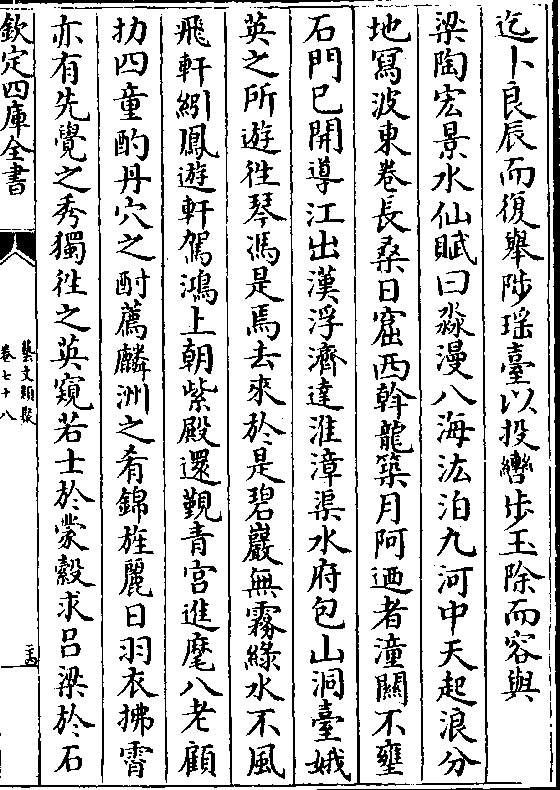 迄卜良辰而復舉陟瑶臺以投轡步玉除而容與
梁陶宏景水仙賦曰淼漫八海汯泊九河中天起浪分
地冩波東卷長桑日窟西斡龍築月阿迺者潼關不壅
石門已開導江出漢浮濟達淮漳渠水府包山洞臺娥
英之所遊徃琴馮是焉去來於是碧巖無霧綠水不風
飛軒紖鳳遊軒駕鴻上朝紫殿還覲青宫進麾八老顧
扐四童酌丹穴之酎薦麟洲之肴錦旌麗日羽衣拂霄
亦有先覺之秀獨徃之英窺若士於蒙穀求吕梁於石
欽定四庫全書
藝文類聚
卷七十八